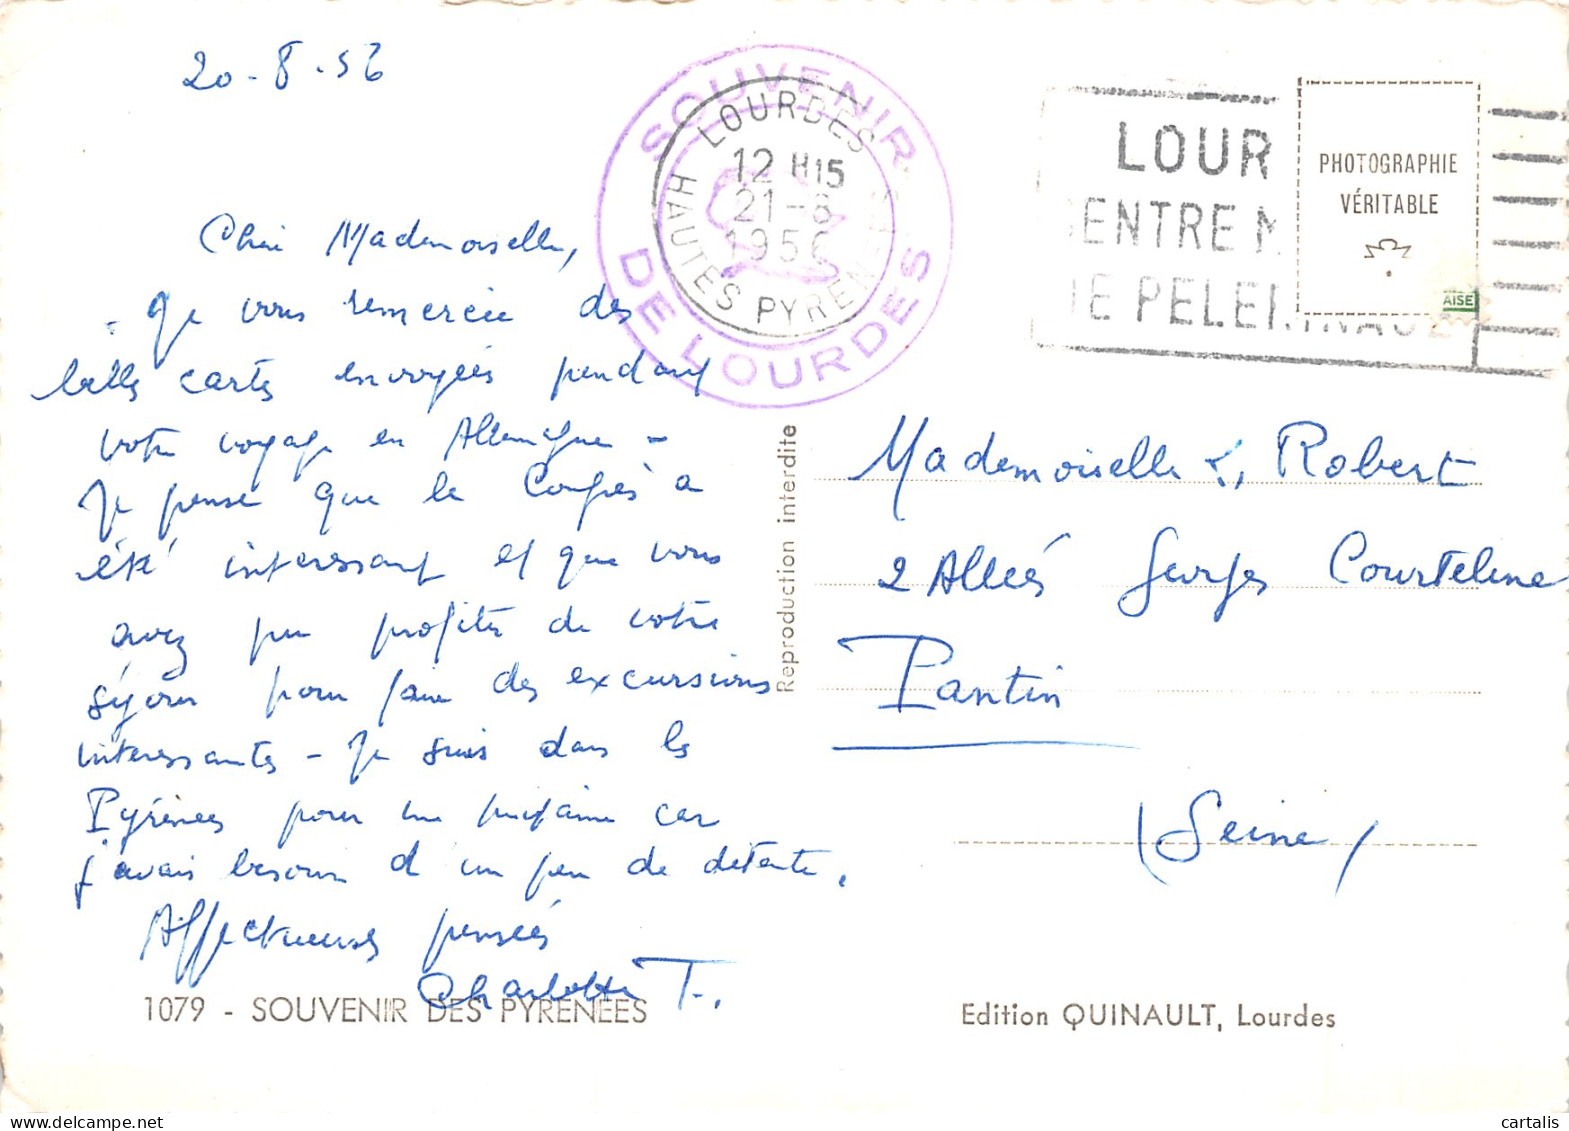 20-8-56
Chère Mademoiselle,
- Je vous remercie des
belles cartes envoyées pendant
votre voyage en Allemagne -
Je pense que le Congrès a
été intéressant et que vous
avez pu profiter de votre
séjour pour faire des excursions
intéressantes - Je suis dans les
Pyrénées pour une quinzaine car
j'avais besoin d'un peu de détente.
Affectueuses pensées
Charlotte T.
1079 - SOUVENIR DES PYRENEES
SOUVENIR
DE LOURDES
LOURDES
12 H15
21-8
1956
HAUTES PYRENEES
Reproduction interdite
LOUR
ENTRE M
DE PELERINAGE
PHOTOGRAPHIE
VÉRITABLE
AISE
Mademoiselle L. Robert
2 Allées Georges Courteline
Pantin
(Seine)
Edition QUINAULT, Lourdes
cartalis